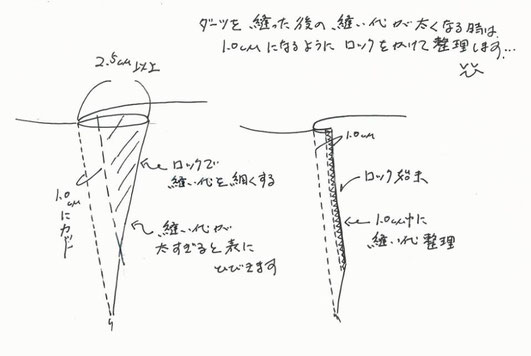 ダーツを縫った後の縫い代が太くなる時は
1.0cmになるようにロックをかけて整理します…
2.5cm以上
1.0cmにカット
ロックで
縫い代を細くする
縫い代が
太すぎると表に
ひびきます
1.0cm
ロック始末
1.0cm巾に
縫い代整理